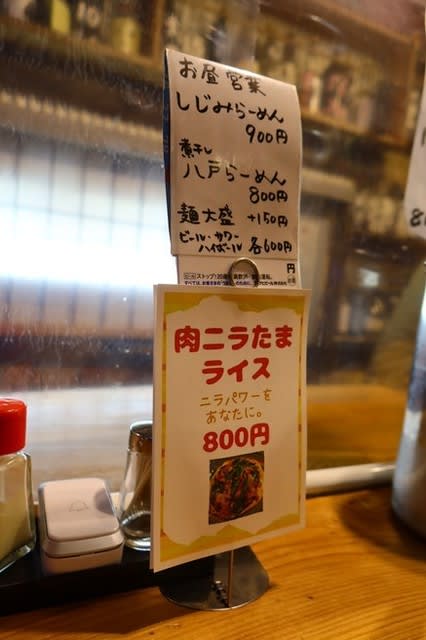 お昼営業
しじみらーめん
900円
煮干し
八戸らーめん
800円
麺大盛 +150円
ビール・サワー
ハイボール 各600円
円
肉ニラたま
ライス
ニラパワーを
あなたに。
800円